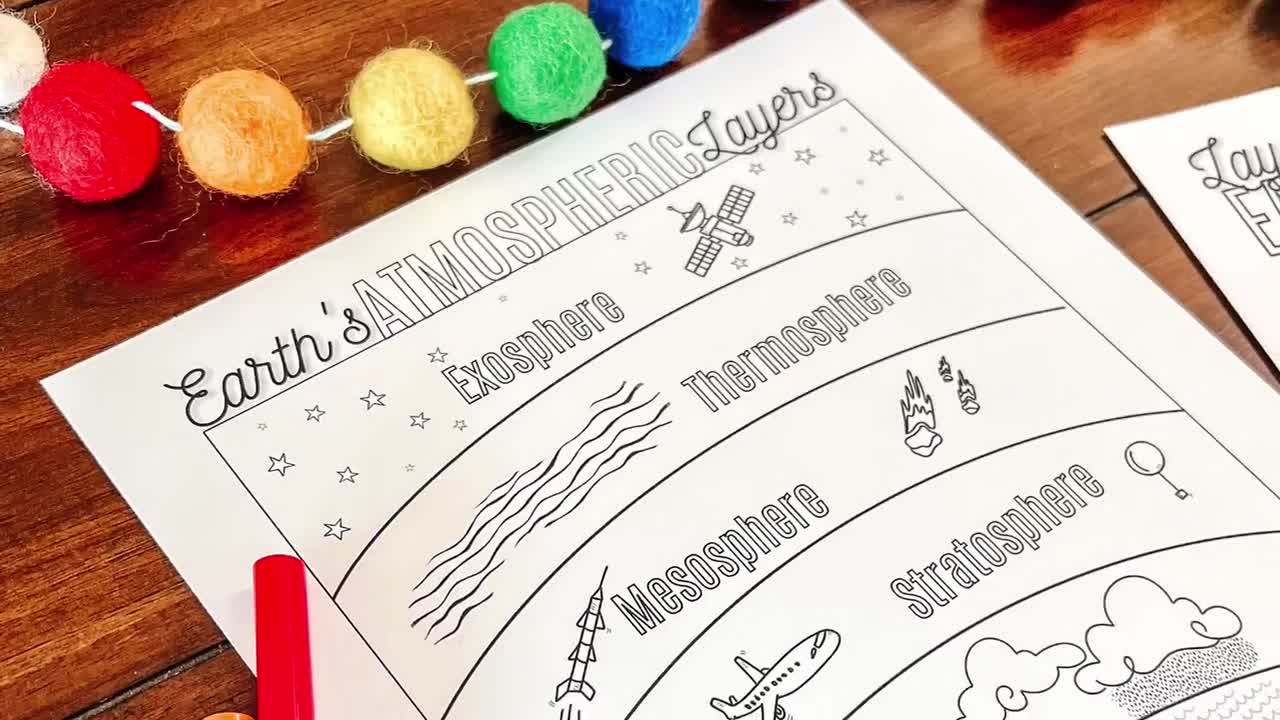 Earth's ATMOSPHERIC Layers
Exosphere
Thermosphere
Mesosphere
Stratosphere